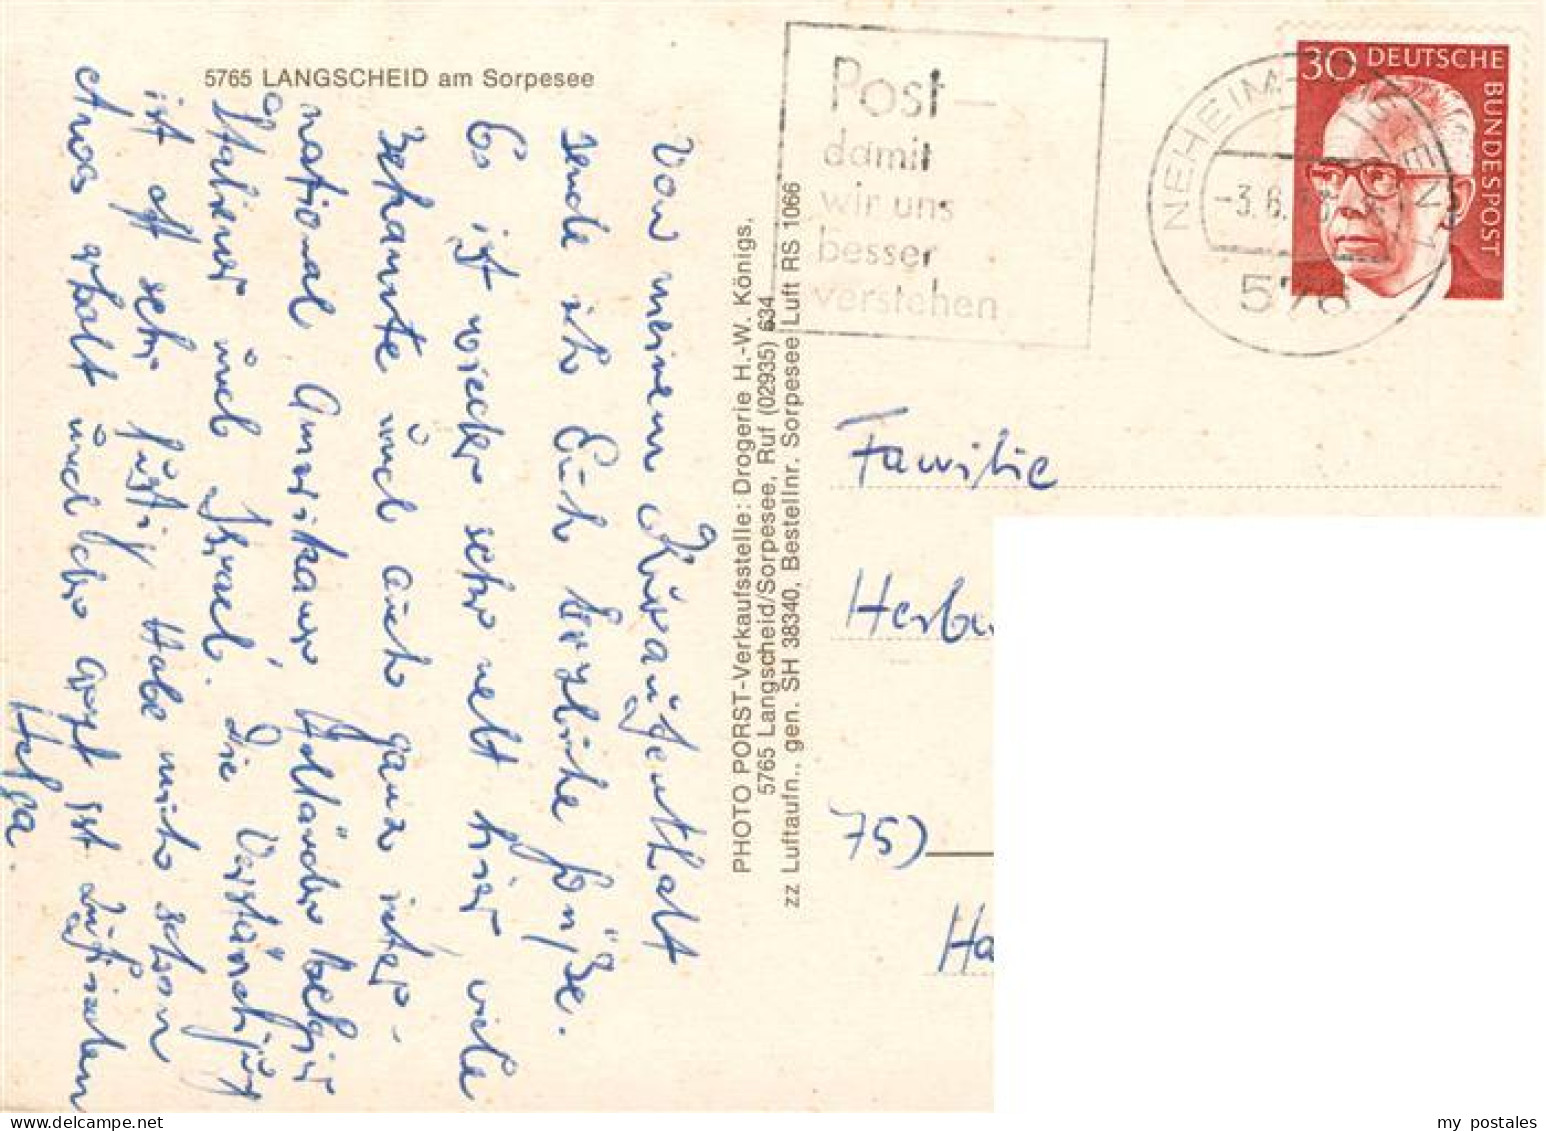 5765 LANGSCHEID am Sorpesee
Von meinem Kuraufenthalt
sende ich Euch herzliche Grüße.
Es ist wieder sehr nett hier viele
Bekannte und auch ganz inter-
national Amerikaner, Holländer Belgier
Italiener und Israel. Die Verständigung
ist oft sehr lustig. Habe mich schon
etwas erholt und der Arzt ist zufrieden
Helga.
PHOTO PORST-Verkaufsstelle: Drogerie H.-W. Königs.
5765 Langscheid/Sorpesee, Ruf (02935) 634
zz Luftaufn., gen. SH 38340, Bestellnr. Sorpesee Luft RS 1066
Post-
damit
wir uns
besser
verstehen
NEHEIM-HÜSTEN 1
-3.6.
576
30 DEUTSCHE
BUNDESPOST
Familie
Herbe
75)
Ha
my postales